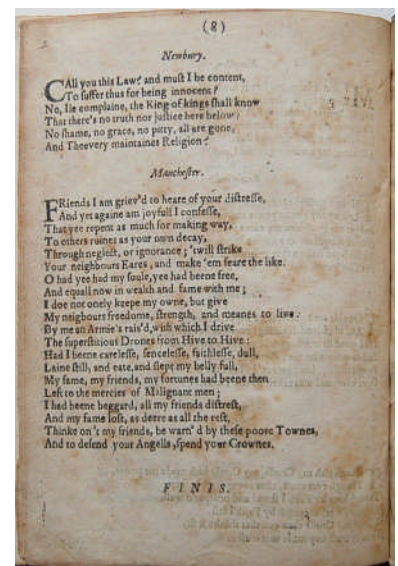 (8)
Newbury.
CAll you this Law? and must I be content,
To suffer thus for being innocent?
No, Ile complaine, the King of kings shall know
That there's no truth nor justice here below:
No shame, no grace, no pitty, all are gone,
And Theevery maintaines Religion?
Manchester.
FRiends I am griev'd to heare of your distresse,
And yet againe am joyfull I confesse,
That yee repent as much for making way,
To others ruines as your own decay,
Through neglect, or ignorance; 'twill strike
Your neighbours Eares, and make 'em feare the like.
O had yee had my soule, yee had beene free,
And equall now in wealth and fame with me;
I doe not onely keepe my owne, but give
My neigbours freedome, strength, and meanes to live:
By me an Armie's rais'd, with which I drive
The superstitious Drones from Hive to Hive:
Had I beene carelesse, sencelesse, faithlesse, dull,
Laine still, and eate, and slept my belly full,
My fame, my friends, my fortunes had beene then
Left to the mercies of Malignant men;
I had beene beggard, all my friends distrest,
And my fame lost, as deere as all the rest,
Thinke on't my friends, be warn'd by these poore Townes,
And to defend your Angells, spend your Crownes.
FINIS.